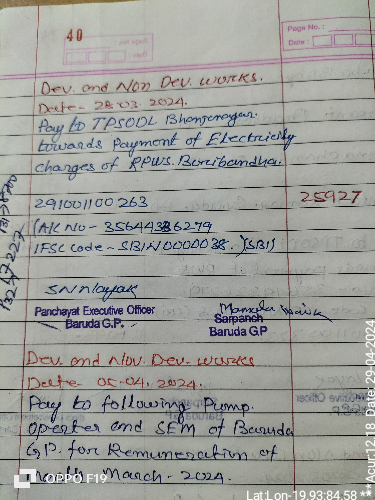 40
Page No.:
Date:
Dev. and Non Dev. works.
Date- 28.03.2024.
Pay to TPSODL Bhanjanagar
towards Payment of Electricity
charges of RPWS. Buribandha.
291001100263
25927
(A/C No- 35644336279
IFSC Code - SBIN0000038.) (SBI)
SNNayak
Panchayat Executive Officer
Baruda G.P.
Sarpanch
Baruda G.P
Dev. and Nov. Dev. works
Date- 05-04. 2024.
Pay to following Pump.
operter and SEM of Baruda
G.P. for Remuneration of
March- 2024.
OPPO F19
Lat:Lon-19.93:84.55 ***Acur:12.18 Date:29-04-2024